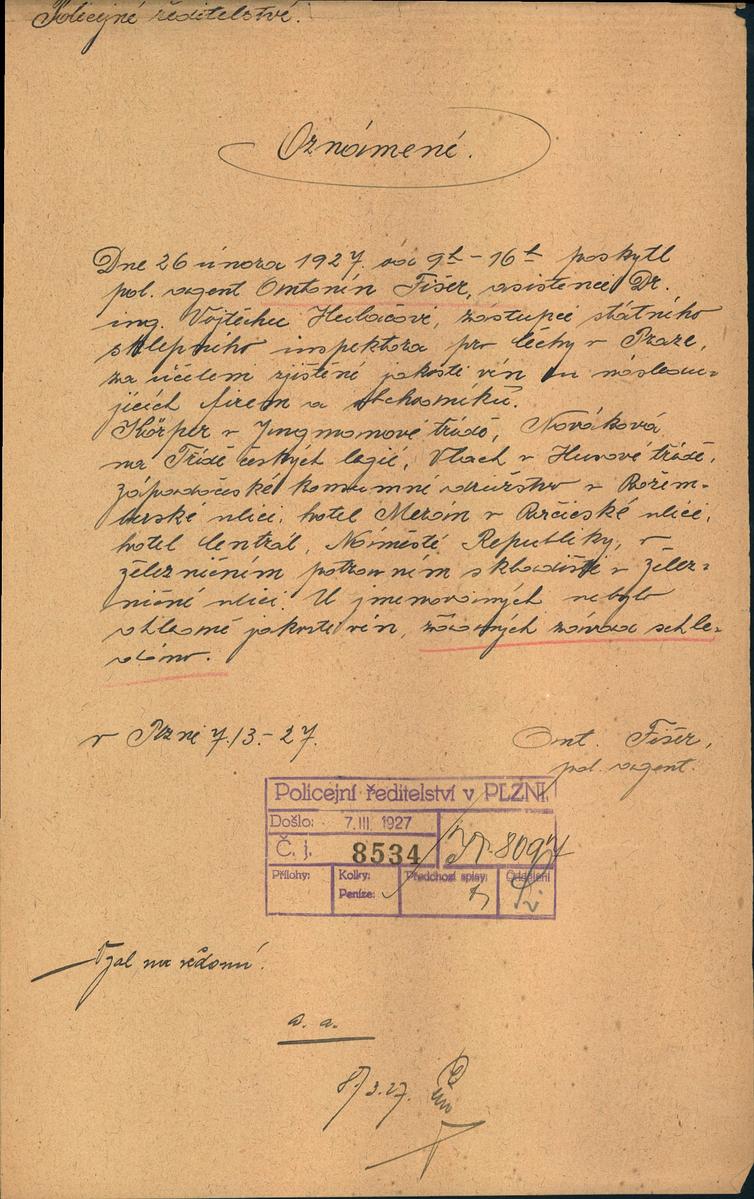 Policejné ředitelstvé.
Oznámené.
Dne 26 února 1927. od 9h – 16h poskytl
pol. agent Antonín Fišer, asistenci Dr.
ing. Vojtěchu Hulačové, zástupci státního
sklepního inspektora pro Čechy v Praze,
za účelem zjištěné jakosti vín u násled-
jících firem a obchodníků.
Körper v Jungmanové třídě, Nováková
na Třídě českých legií, Vlach v Husově třídě,
západočeské konsumní družstvo v Rožem-
berské ulici, hotel Meran v Purkyněské ulici,
hotel Central, Náměsté Republiky, v
železničním potravním skladišti v želez-
niční ulici. U jmenovaných nebylo
ohledně jakosti vín, žádných závad schle-
dáno.
v Plzni 7./3.-27.
Ant. Fišer,
pol. agent.
Policejní ředitelství v PLZNI.
Došlo: 7.III 1927
Č. j. 8534
Přílohy: Kolky: Předchozí spisy: Oddělení
Peníze:
Vzal na vědomí.
a. a.
8/3.27.